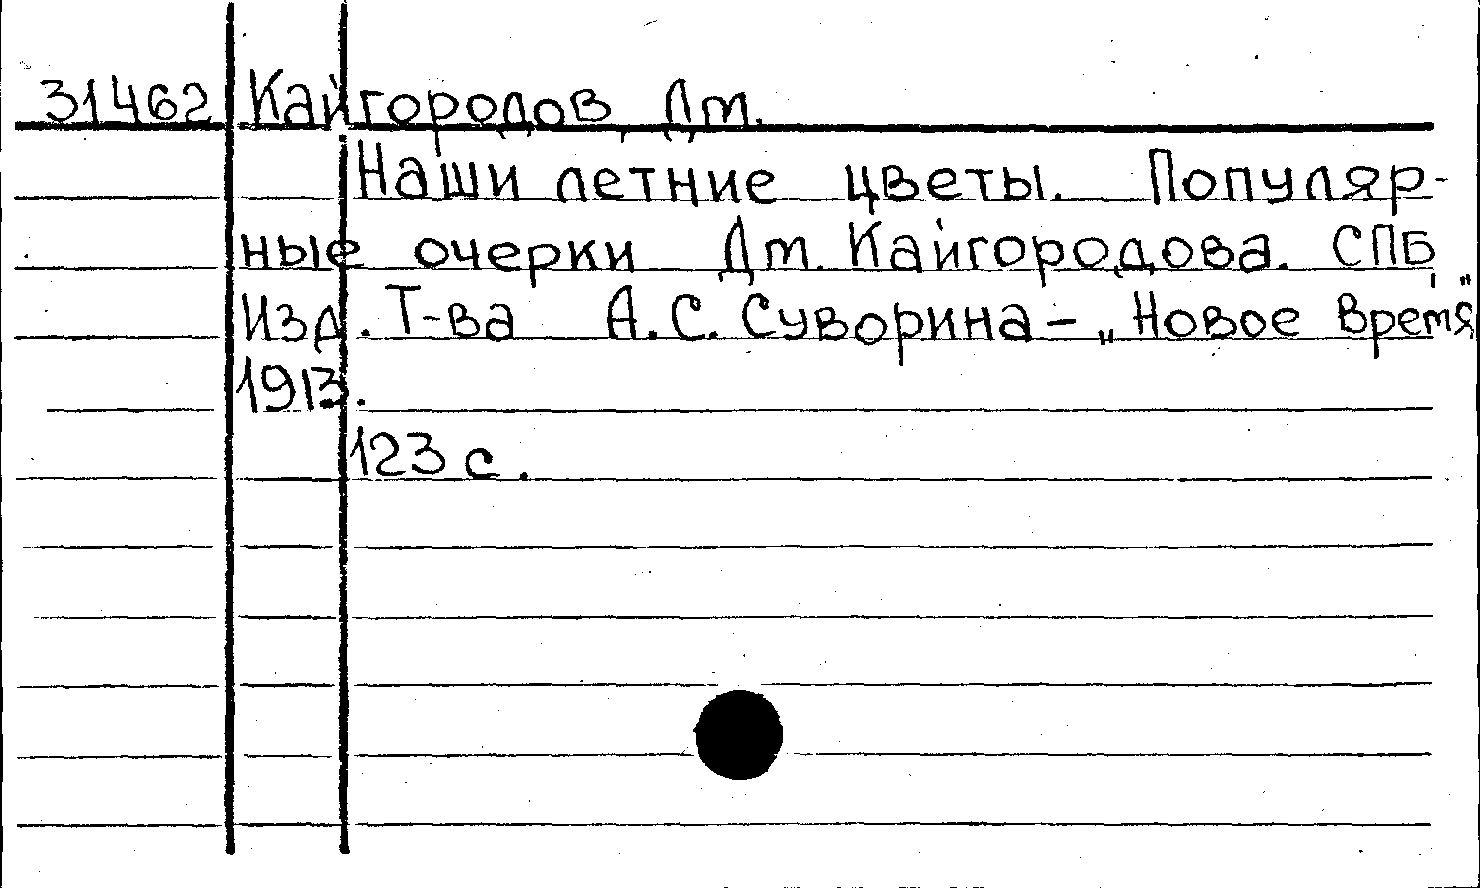 31462 Кайгородов, Дм.
Наши летние цветы. Популяр-
ные очерки Дм. Кайгородова. СПБ,
Изд. Т-ва А.С. Суворина - „Новое Время"
1913.
123 с.